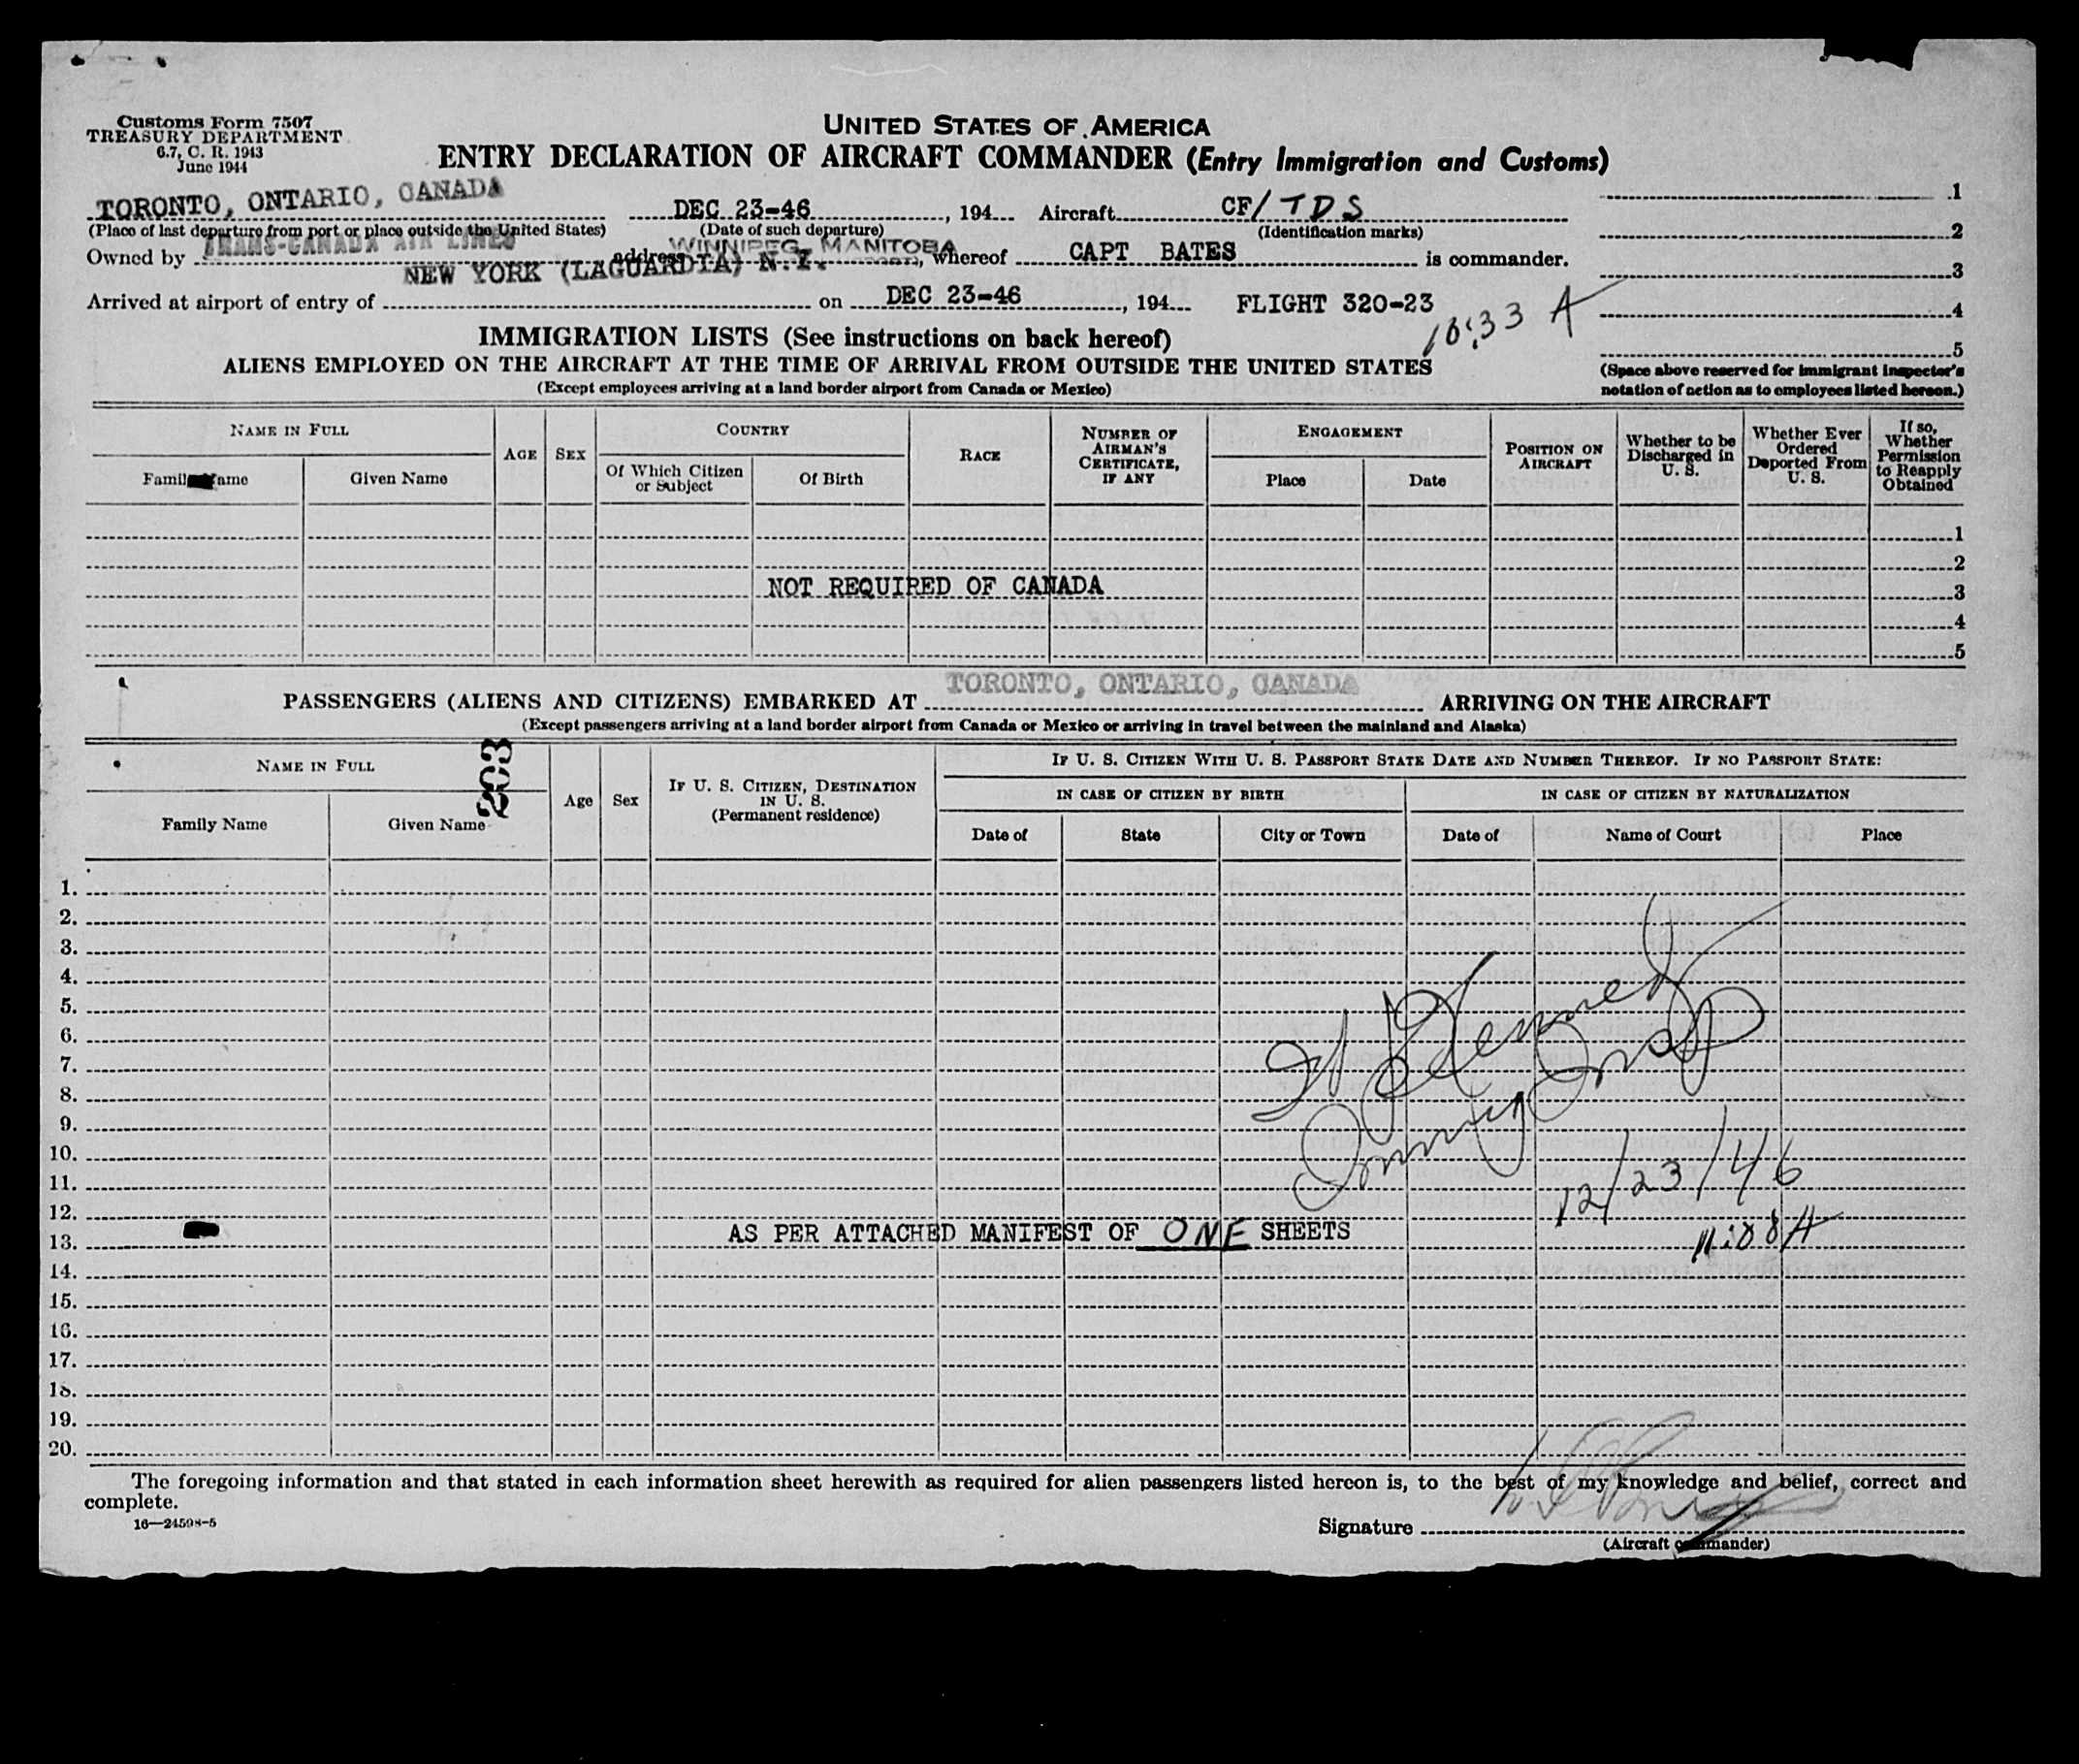 Customs Form 7507
TREASURY DEPARTMENT
6.7, C. R. 1943
June 1944
UNITED STATES OF AMERICA
ENTRY DECLARATION OF AIRCRAFT COMMANDER (Entry Immigration and Customs)
TORONTO, ONTARIO, CANADA DEC 23-46, 194 Aircraft CF/TDS
(Place of last departure from port or place outside the United States) (Date of such departure) (Identification marks)
Owned by TRANS-CANADA AIR LINES address WINNIPEG, MANITOBA, whereof CAPT BATES is commander.
NEW YORK (LAGUARDIA) N.Y.
Arrived at airport of entry of on DEC 23-46, 194 FLIGHT 320-23
10:33 A
1
2
3
4
5
(Space above reserved for immigrant inspector's
notation of action as to employees listed hereon.)
IMMIGRATION LISTS (See instructions on back hereof)
ALIENS EMPLOYED ON THE AIRCRAFT AT THE TIME OF ARRIVAL FROM OUTSIDE THE UNITED STATES
(Except employees arriving at a land border airport from Canada or Mexico)
NAME IN FULL
Family Name
Given Name
AGE
SEX
COUNTRY
Of Which Citizen
or Subject
Of Birth
RACE
NUMBER OF
AIRMAN'S
CERTIFICATE,
IF ANY
ENGAGEMENT
Place
Date
POSITION ON
AIRCRAFT
Whether to be
Discharged in
U. S.
Whether Ever
Ordered
Deported From
U. S.
If so,
Whether
Permission
to Reapply
Obtained
1
2
NOT REQUIRED OF CANADA 3
4
5
TORONTO, ONTARIO, CANADA
PASSENGERS (ALIENS AND CITIZENS) EMBARKED AT ARRIVING ON THE AIRCRAFT
(Except passengers arriving at a land border airport from Canada or Mexico or arriving in travel between the mainland and Alaska)
203
NAME IN FULL
Family Name
Given Name
Age
Sex
IF U. S. CITIZEN, DESTINATION
IN U. S.
(Permanent residence)
IF U. S. CITIZEN WITH U. S. PASSPORT STATE DATE AND NUMBER THEREOF. IF NO PASSPORT STATE:
IN CASE OF CITIZEN BY BIRTH
IN CASE OF CITIZEN BY NATURALIZATION
Date of
State
City or Town
Date of
Name of Court
Place
1.
2.
3.
4.
5.
6.
7.
8.
9.
10.
11.
12/23/46
12.
AS PER ATTACHED MANIFEST OF ONE SHEETS
11:08A
13.
14.
15.
16.
17.
18.
19.
20.
The foregoing information and that stated in each information sheet herewith as required for alien passengers listed hereon is, to the best of my knowledge and belief, correct and
complete.
16—24598-5
Signature
(Aircraft commander)